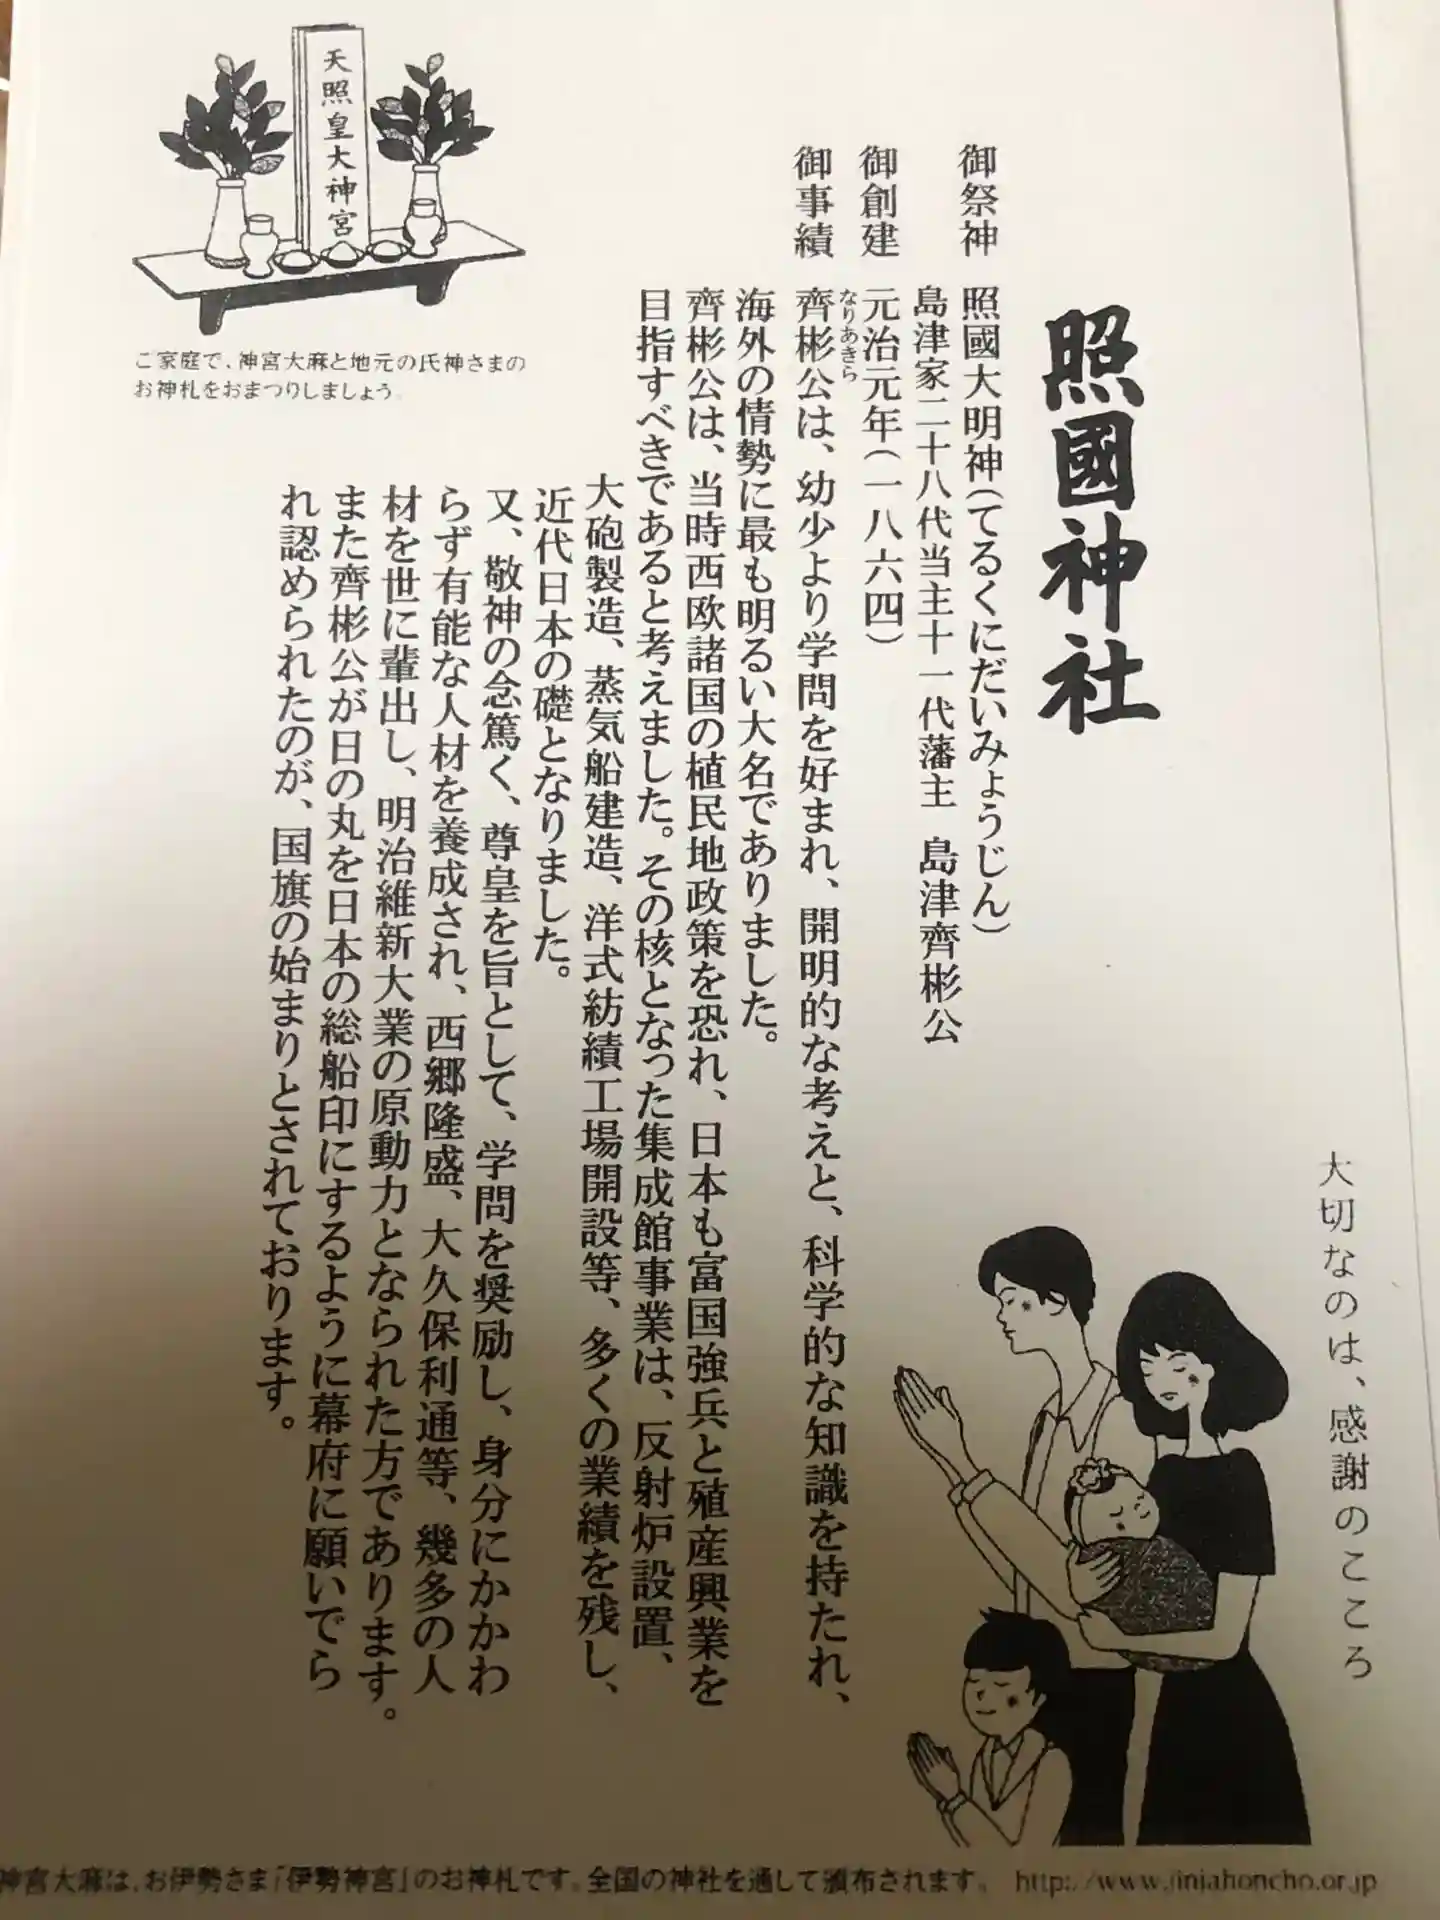 大切なのは、感謝のこころ
照國神社
御祭神 照國大明神(てるくにだいみょうじん)
島津家二十八代当主十一代藩主 島津齊彬公
御創建 元治元年(一八六四)
なりあきら
御事績 齊彬公は、幼少より学問を好まれ、開明的な考えと、科学的な知識を持たれ、
海外の情勢に最も明るい大名でありました。
齊彬公は、当時西欧諸国の植民地政策を恐れ、日本も富国強兵と殖産興業を
目指すべきであると考えました。その核となった集成館事業は、反射炉設置、
大砲製造、蒸気船建造、洋式紡績工場開設等、多くの業績を残し、
近代日本の礎となりました。
又、敬神の念篤く、尊皇を旨として、学問を奨励し、身分にかかわ
らず有能な人材を養成され、西郷隆盛、大久保利通等、幾多の人
材を世に輩出し、明治維新大業の原動力となられた方であります。
また齊彬公が日の丸を日本の総船印にするように幕府に願いでら
れ認められたのが、国旗の始まりとされております。
天照皇大神宮
ご家庭で、神宮大麻と地元の氏神さまの
お神札をおまつりしましょう。
神宮大麻は、お伊勢さま「伊勢神宮」のお神札です。全国の神社を通して頒布されます。 http://www.jinjahoncho.or.jp